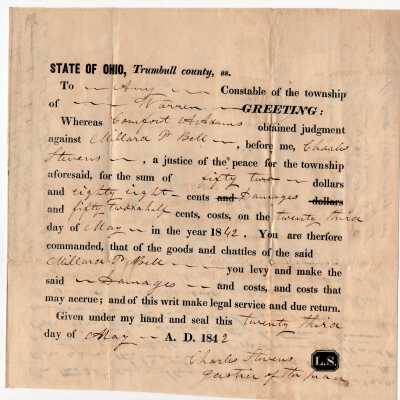 STATE OF OHIO, Trumbull county, ss.
To Any Constable of the township
of Warren GREETING:
Whereas Comfort A Adams obtained judgment
against Millard P Bell, before me, Charles
Stevens, a justice of the peace for the township
aforesaid, for the sum of fifty two dollars
and eighty eight cents and Damages dollars
and fifty Two & half cents, costs, on the twenty third
day of May in the year 1842. You are therfore
commanded, that of the goods and chattles of the said
Millard P. Bell you levy and make the
said Damages and costs, and costs that
may accrue; and of this writ make legal service and due return.
Given under my hand and seal this twenty third
day of May A. D. 1842
Charles Stevens L.S.
Justice of the Peace